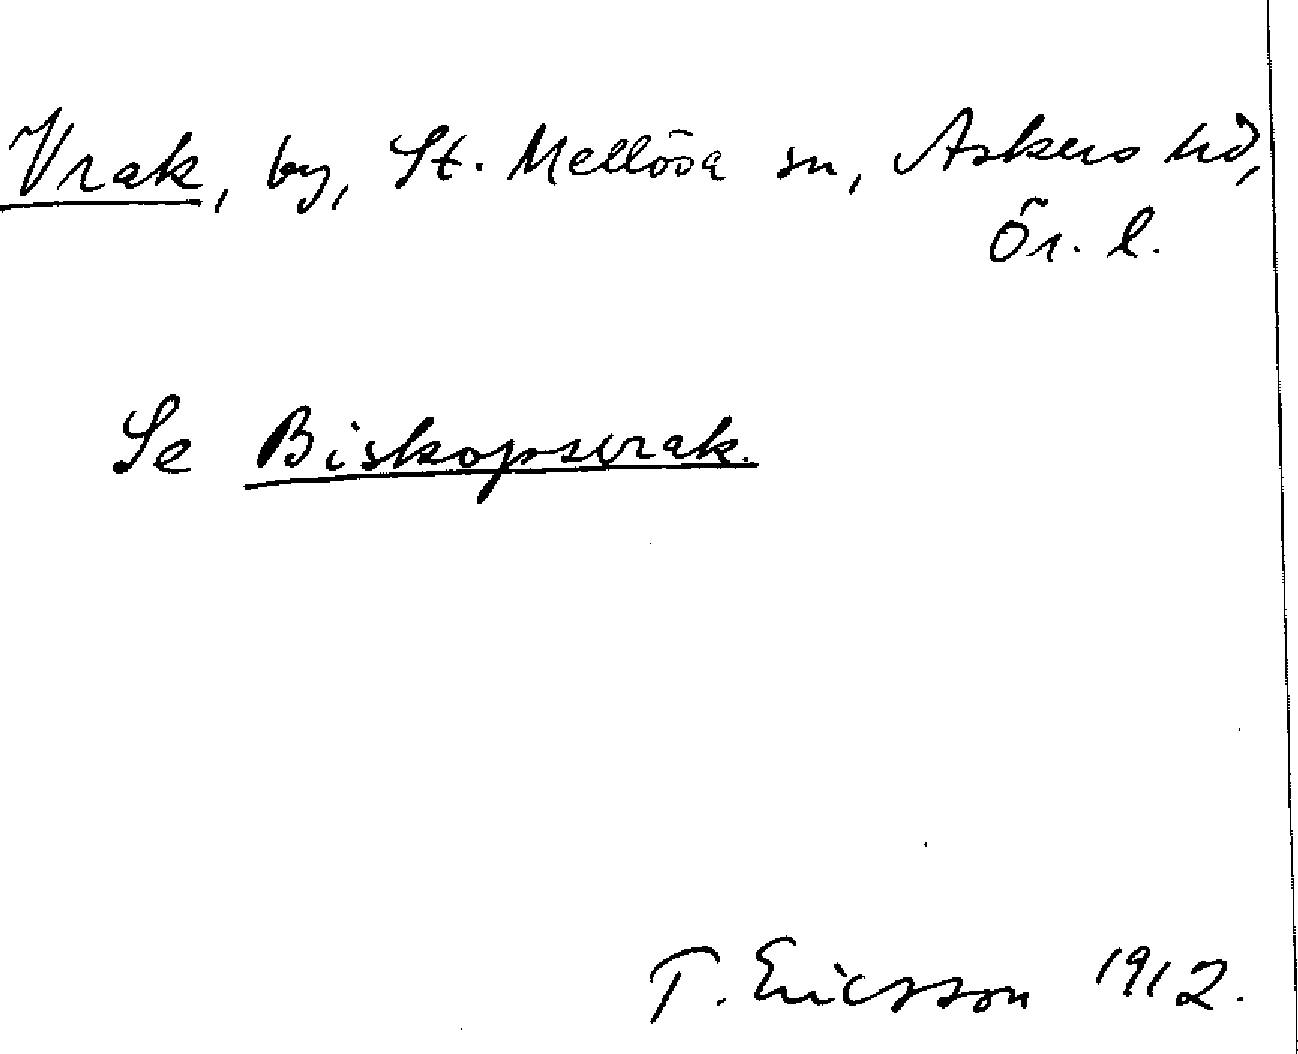 Vrak, by, St. Mellösa sn, Askers hd,
Ör. l.
Se Biskopsvrak.
T. Ericsson 1912.